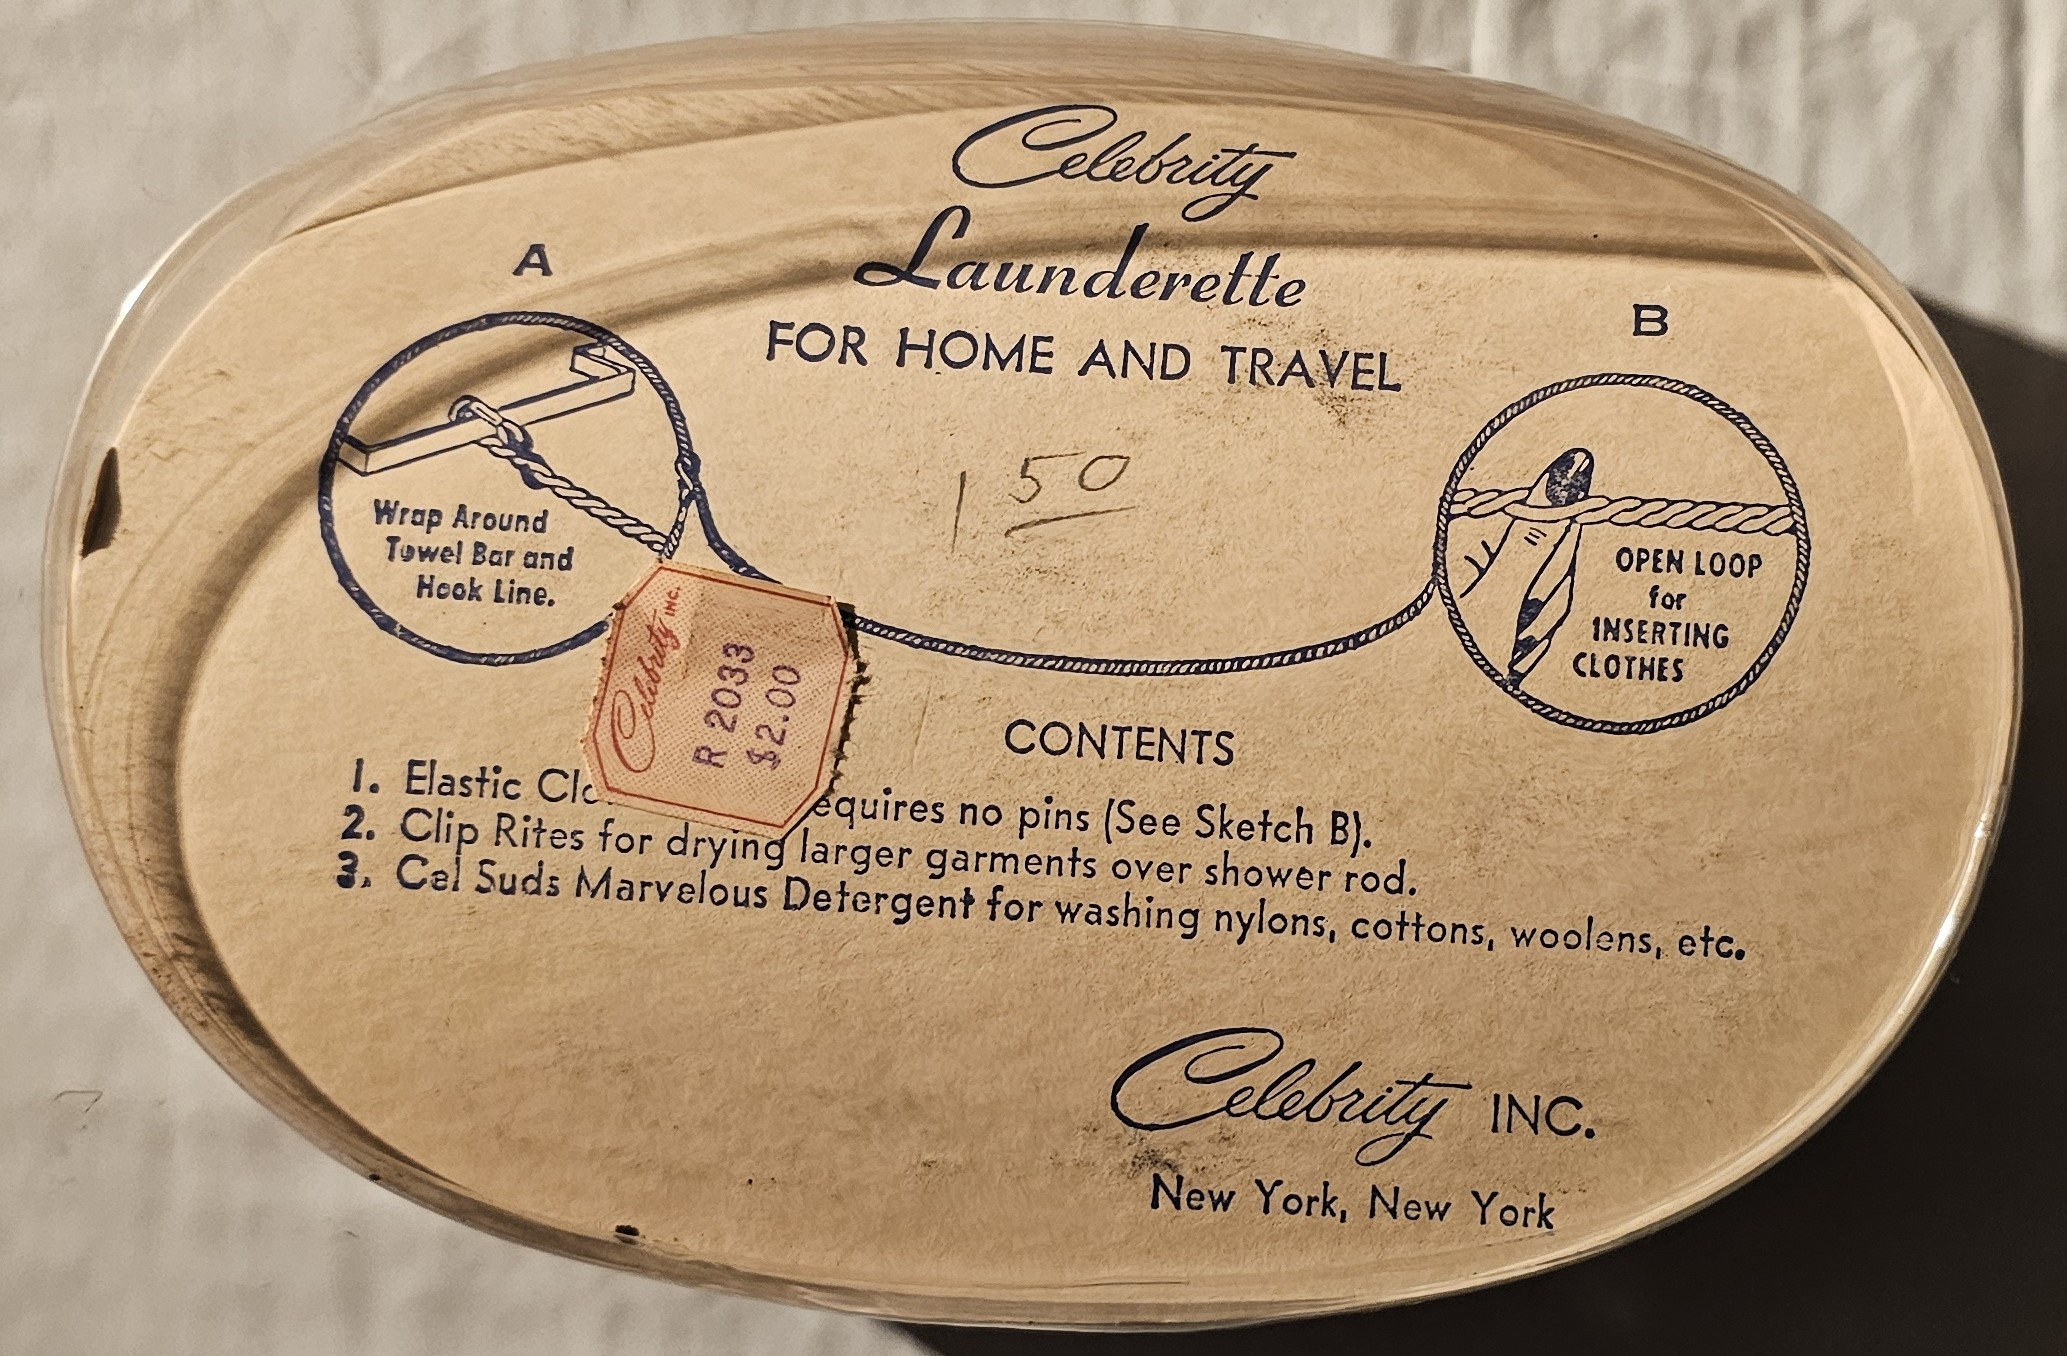 Celebrity
Launderette
FOR HOME AND TRAVEL
A
Wrap Around
Towel Bar and
Hook Line.
B
OPEN LOOP
for
INSERTING
CLOTHES
1 50
Celebrity INC.
R 2033
$2.00
CONTENTS
1. Elastic no pins (See Sketch B).
2. Clip Rites for drying larger garments over shower rod.
3. Cel Suds Marvelous Detergent for washing nylons, cottons, woolens, etc.
Celebrity INC.
New York, New York